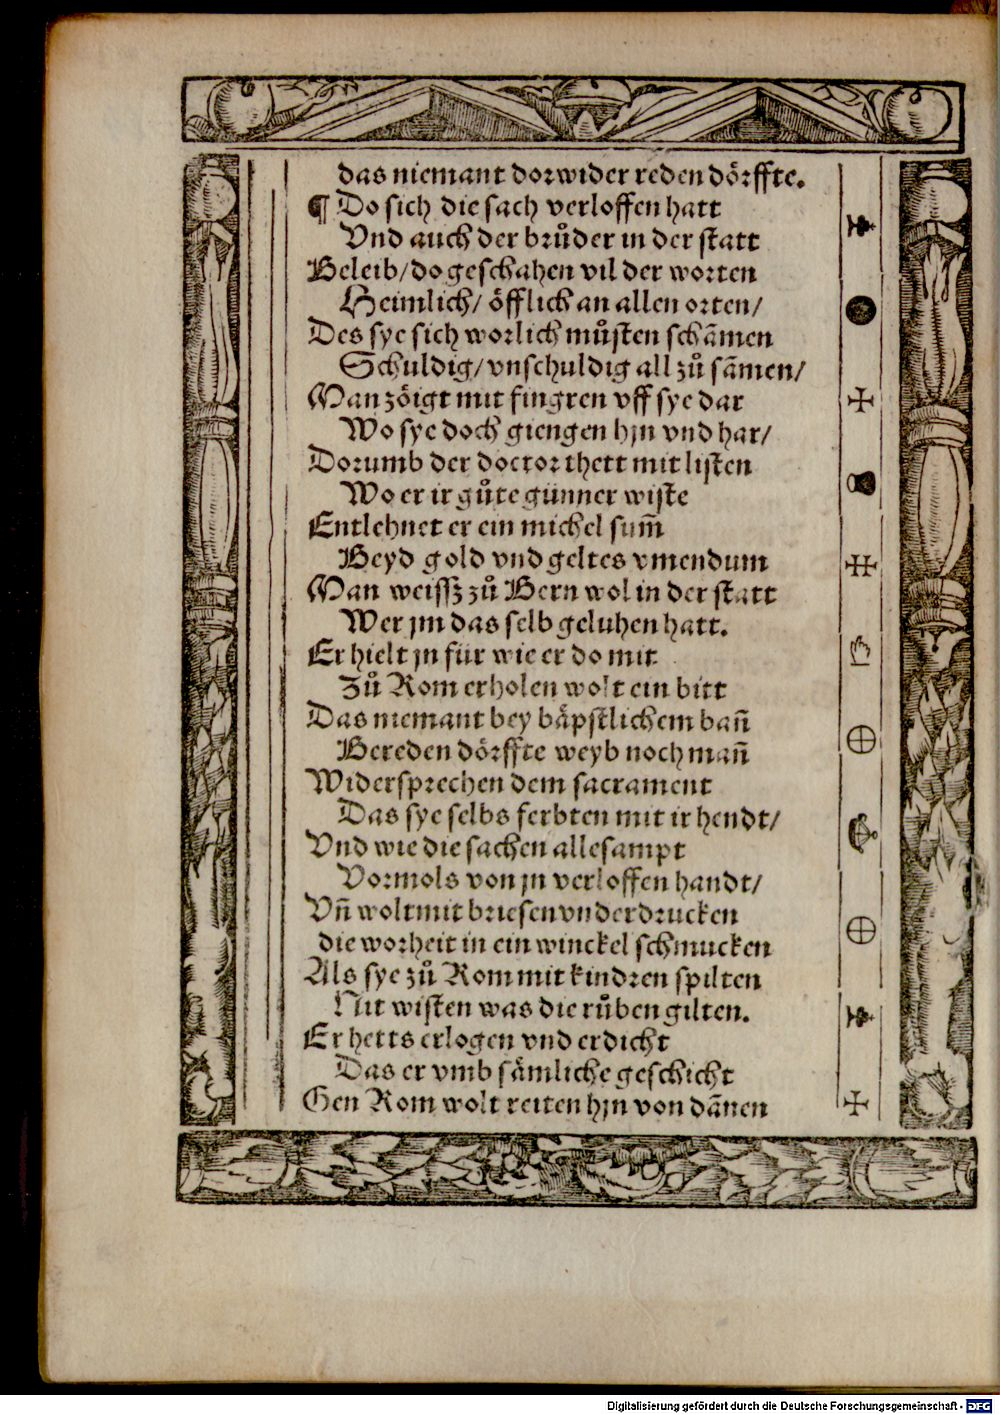 das niemant dorwider reden dörffte.
¶ Do sich die sach verloffen hatt
Vnd auch der brůder in der statt
Beleib/ do geschahen vil der worten
Heimlich/ öfflich an allen orten/
Des sye sich worlich můsten schãmen
Schuldig/ vnschuldig all zů sãmen/
Man zöigt mit fingren vff sye dar
Wo sye doch giengen hjn vnd har/
Dorumb der doctor thett mit listen
Wo er ir gůte günner wiste
Entlehnet er ein michel sum̃
Beyd gold vnd geltes vmendum
Man weissz zů Bern wol in der statt
Wer jm das selb geluhen hatt.
Er hielt jn für wie er do mit
Zů Rom erholen wolt ein bitt
Das niemant bey bäpstlichem bañ
Bereden dörffte weyb noch mañ
Widersprechen dem sacrament
Das sye selbs ferbten mit ir hendt/
Vnd wie die sachen allesampt
Vormols von jn verloffen handt/
Vñ wolt mit briefen vnderdrucken
die worheit in ein winckel schmucken
Als sye zů Rom mit kindren spilten
Nit wisten was die růben gilten.
Er hetts erlogen vnd erdicht
Das er vmb sämliche geschicht
Gen Rom wolt reiten hjn von dãnen
Digitalisierung gefördert durch die Deutsche Forschungsgemeinschaft - DFG